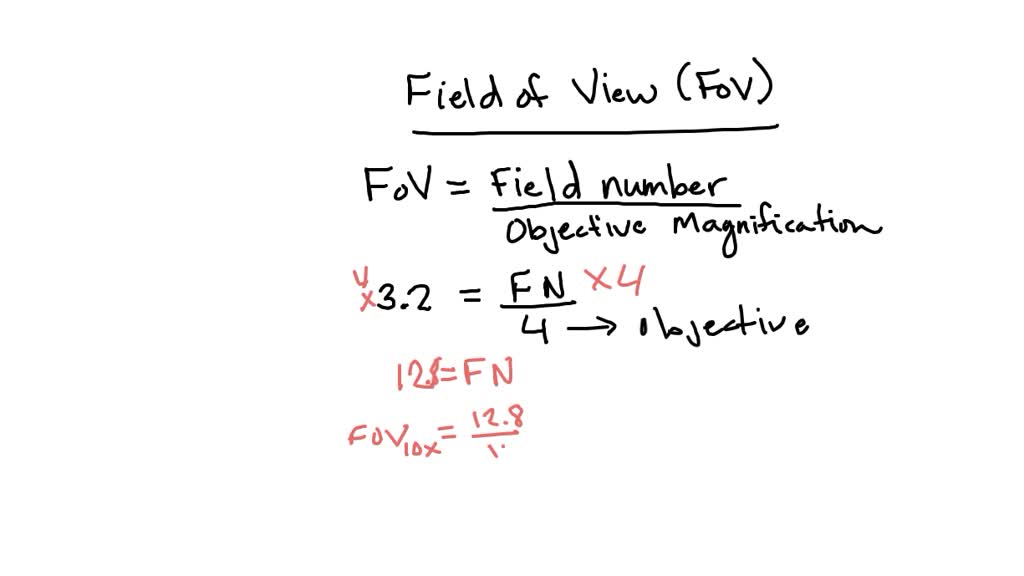 Field of View (FoV)
FoV = Field number
Objective Magnification
x3.2 = FN x4
4 → Objective
12.8 = FN
FOV10x = 12.8